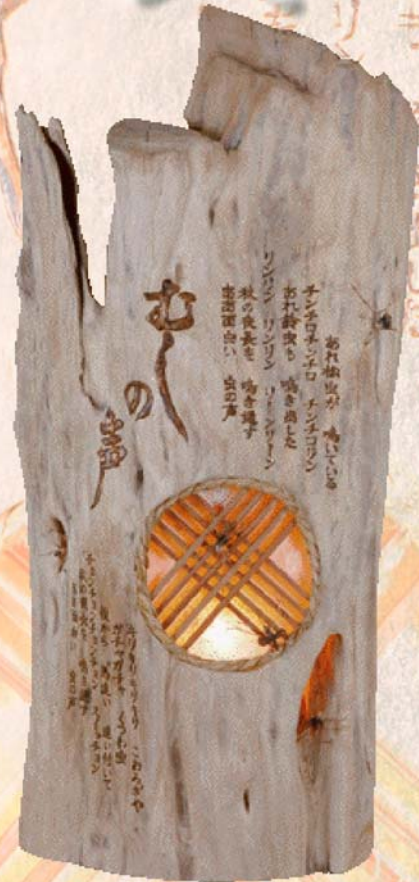 あれ松虫が 鳴いている
チンチロチンチロ チンチロリン
あれ鈴虫も 鳴き出した
リンリン リンリン リーンリーン
秋の夜長を 鳴き通す
ああ面白い 虫の声
むしの声
キリキリキリキリ こおろぎや
ガチャガチャ くつわ虫
後から 馬追い 追い付いて
チョンチョンチョンチョン スイッチョン
秋の夜長を 鳴き通す
ああ面白い 虫の声